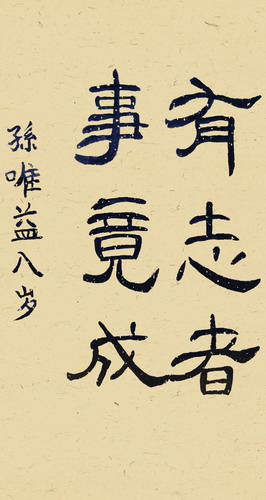 有志者
事竟成
孫唯益八岁